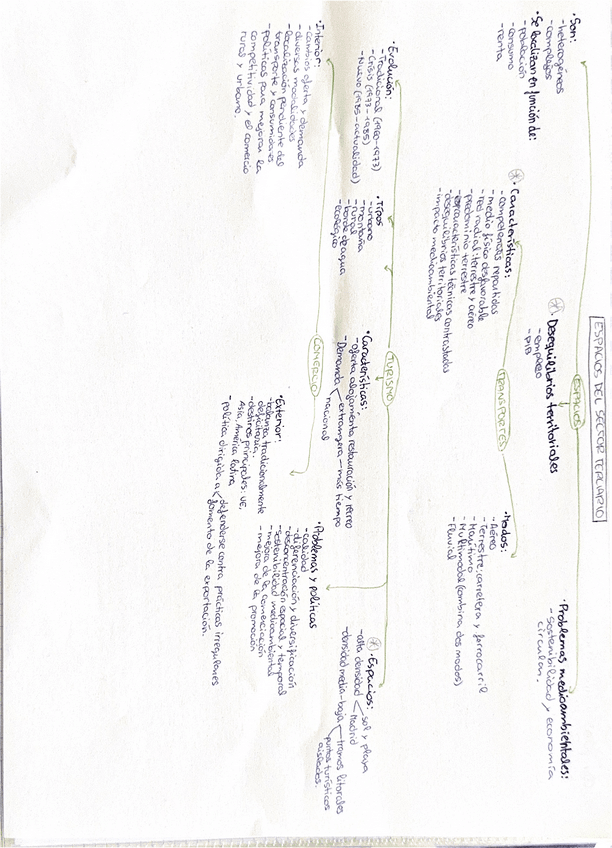 ESPACIOS DEL SECTOR TERCIARIO
ESPACIOS
• Son:
- heterogéneos
- complejos
• Se localizan en función de:
- población
- consumo
- renta
* Desequilibrios territoriales
- empleo
- PIB
• Problemas medioambientales:
- sostenibilidad y economía
circular.
TRANSPORTES
* • Características:
- competencias repartidas
- medio físico desfavorable
- red radial: terrestre y aéreo
- predominio terrestre
- características técnicas contrastadas
- desequilibrios territoriales
- impacto medioambiental
• Modos:
- Aéreo
- Terrestre: carretera y ferrocarril
- Marítimo
- Multimodal (combina dos modos)
- Fluvial
TURISMO
• Evolución:
- Tradicional (1960-1973)
- Crisis (1973-1985)
- Nuevo (1985-actualidad)
• Tipos
- urbano
- montaña
- rural
- borde de agua
- ecológico
• Características:
- oferta alojamiento restauración y recreo
- Demanda
extranjera - más tiempo
nacional
* • Espacios:
- alta densidad
sol y playa
Madrid
- densidad media-baja
tramos litorales
puntos turísticos
aislados.
• Problemas y políticas
- calidad
- diferenciación y diversificación
- desconcentración espacial y temporal
- sostenibilidad medioambiental
- mejora de la comerciación
- mejora de la promoción
COMERCIO
• Interior:
- cambios oferta y demanda
- diversas modalidades
- localización pendiente del
transporte y consumidores
- políticas para mejorar la
competitividad y el comercio
rural y urbano.
• Exterior:
- balanza tradicionalmente
deficitaria.
- destinos principales: UE,
Asia, América latina
- política dirigida a
defenderse contra prácticas irregulares
fomento de la exportación.